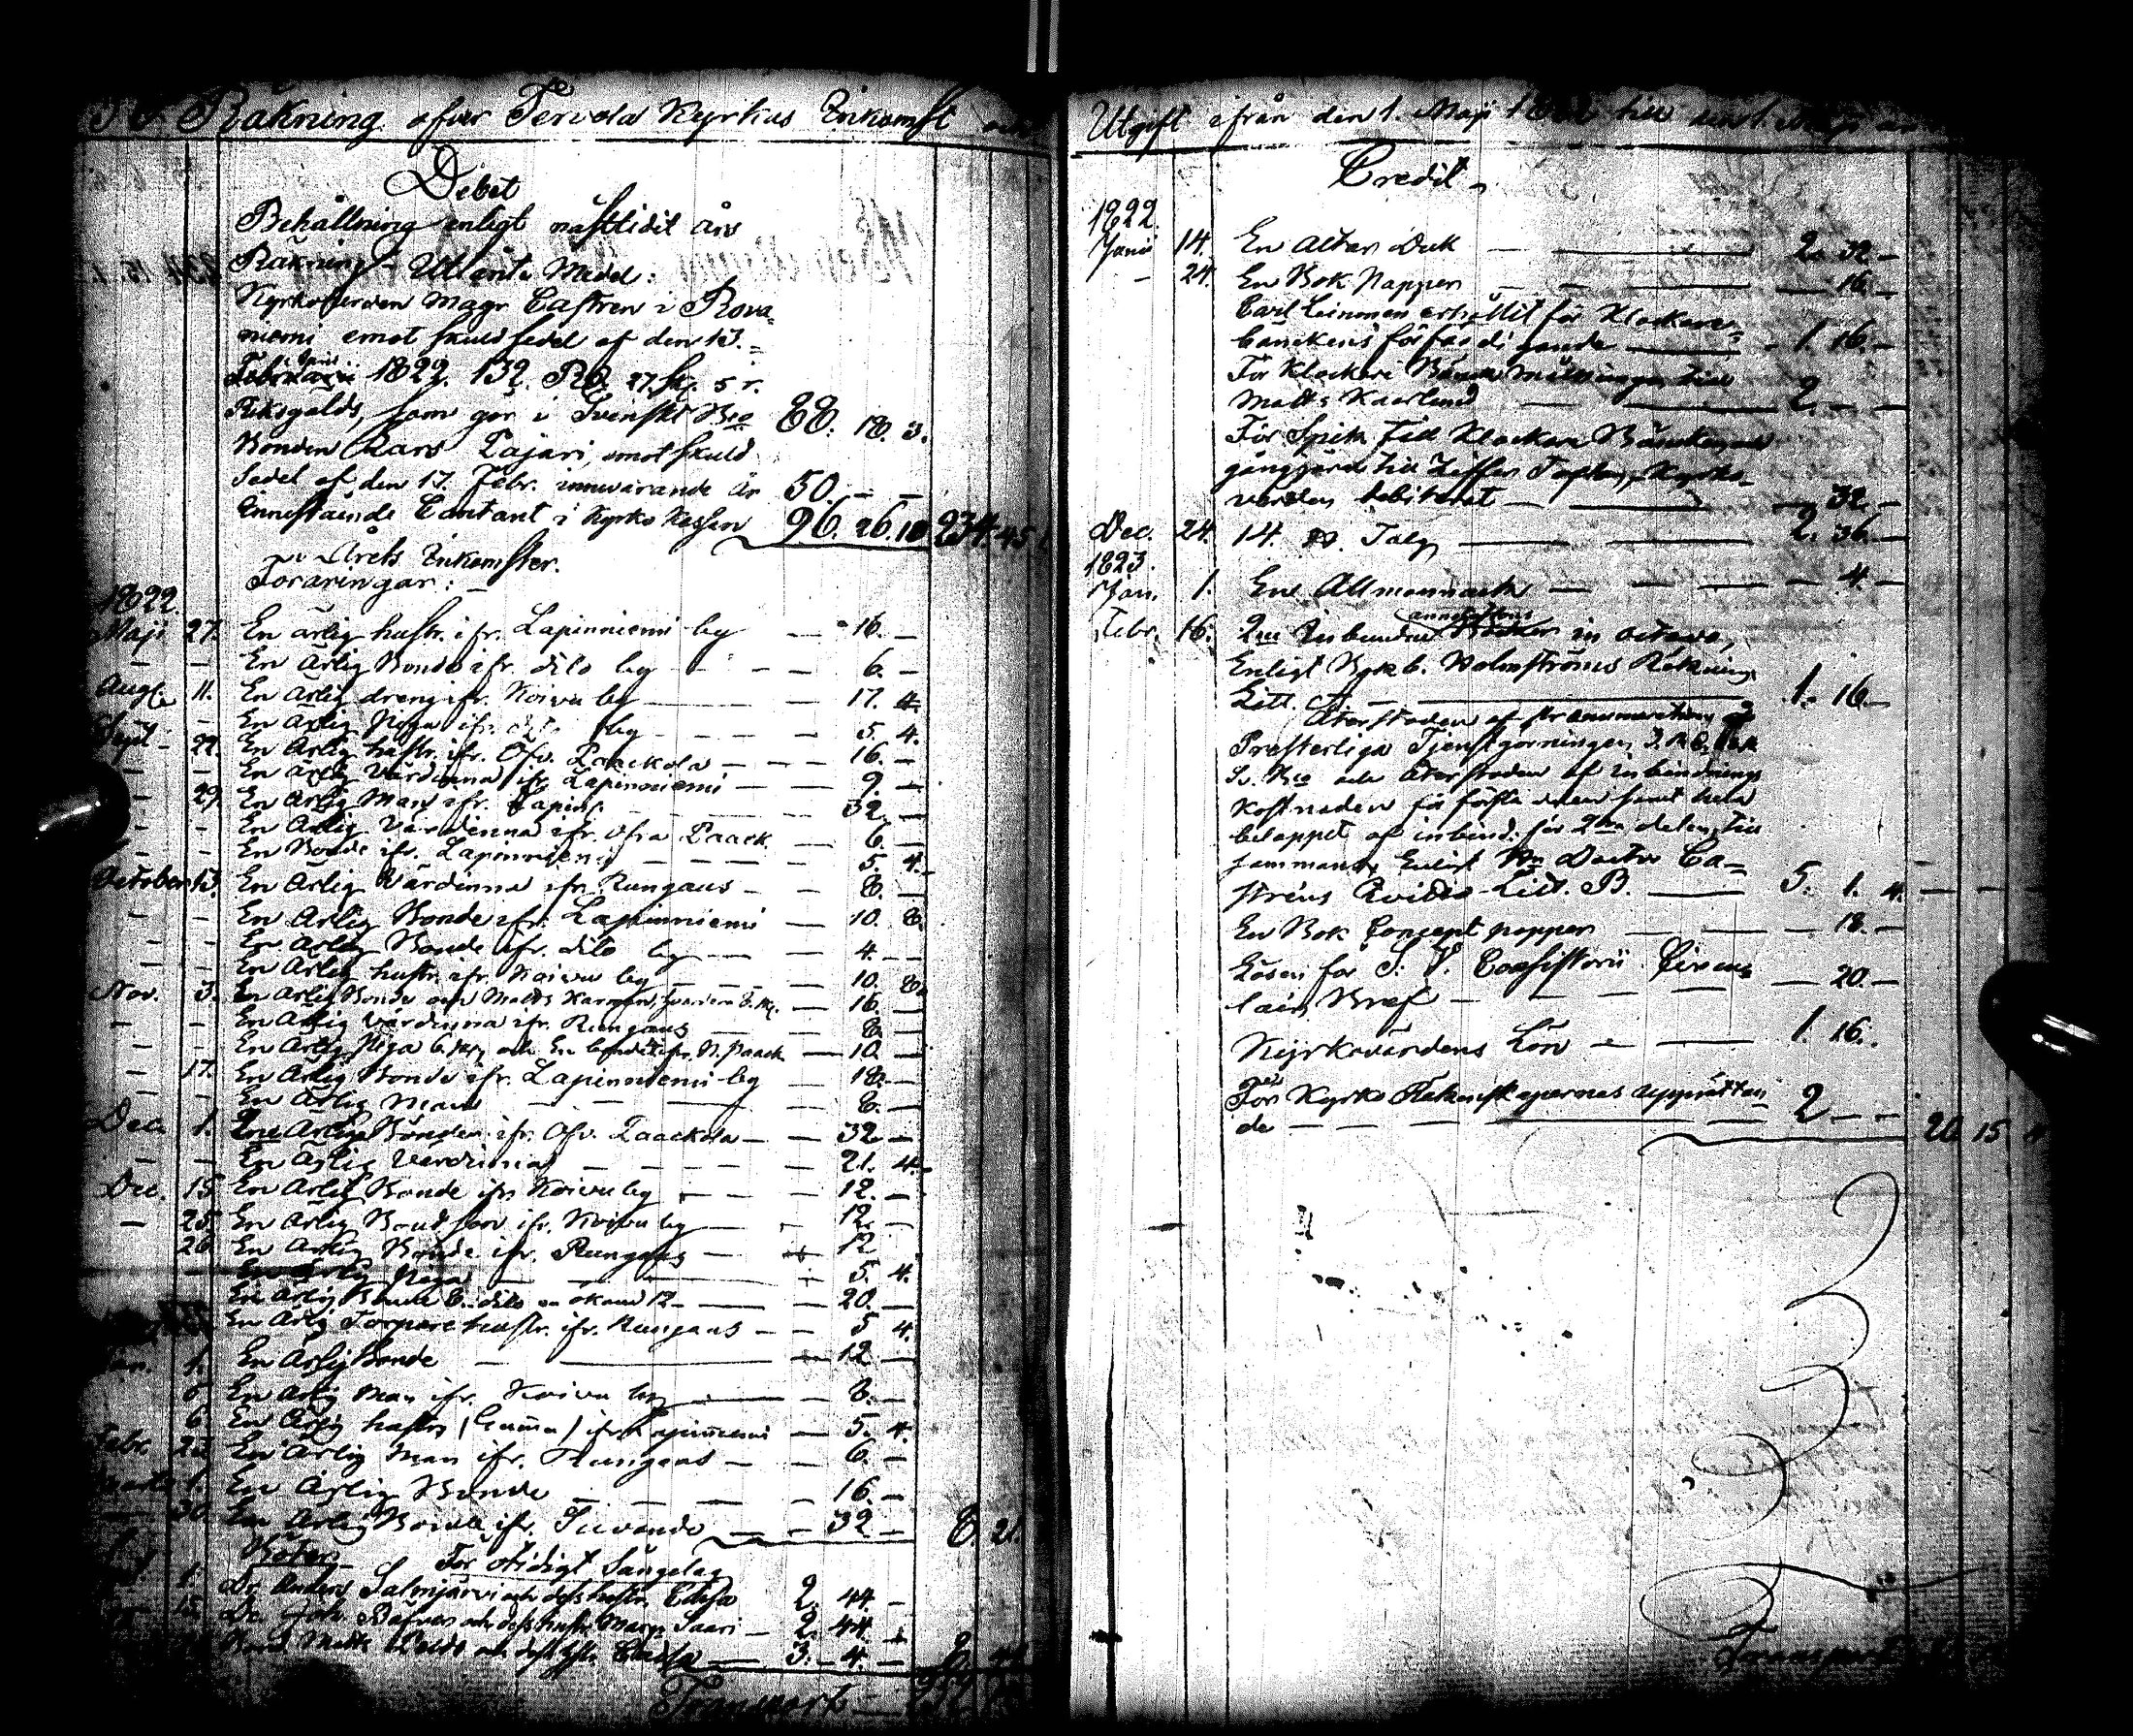 Räkning öfver Tervola Kyrkas Inkomst och
Debet
Behållning enligt nästledit Års
Räkning - Utlänte Medel:
Kyrkoherden Magr Castren i Rova=
niemi emot skuldsedel af den 13.
April 1822. 132. RD. 27 sk. 5 r.
Riksgälds, som gör i Svenskt Bco 88. 18. 3.
Bonden Lars Pajari, emot skuld
sedel af den 17. Febr. innevarande År 50. - -
Innestående Contant i Kyrko Kassan 96. 26. 10 234. 45. 1
Årets Inkomster.
Föräringar:
1822.
Maji 27. En ärlig hustr. ifr. Lapinniemi by - 16. -
- - En Ärlig Bonde ifr. dito by - - - 6. -
Aug. 11. En Ärlig dreng ifr. Koivu by - 17. 4.
- En Ärlig Piga ifr. dito by - - - 5. 4.
Sept. 22. En Ärlig hustr. ifr. Öfv. Paackola - - - 16. -
- - En ärlig Värdinna ifr. Lapinniemi - - 9. -
- 29. En Ärlig Man ifr. Lapin. - - - 32. -
- - En Ärlig Värdinna ifr. öfra Paack. - 6. -
- - En Bonde ifr. Lapinniemi - - - 5. 4.
October 13. En Ärlig Värdinna ifr. Rungaus - - 8. -
- - En Ärlig Bonde ifr. Lapinniemi - 10. 8.
- - En Ärlig Bonde ifr. dito by - - 4. -
- - En Ärlig hustr. ifr. Koivu by - - - 10. 8.
Nov. 3. En Ärlig Bonde och Matts Karman, hvardera 8. sk. - 16. -
- - En Ärlig Värdinna ifr. Rungaus - - 8. -
- - En Ärlig Piga 6. sk. och En bonde ifr. N. Paack - 10. -
- 17. En Ärlig Bonde ifr. Lapinniemi by - 18. -
- - En Ärlig Man - - - 8. -
Dec. 1. 2ne Ärliga Bönder ifr. Öfv. Paackola - - 32. -
- - En Ärlig Värdinna - - - - 21. 4.
Dec. 15. En Ärlig Bonde ifr. Koivu by - - - 12. -
- 25. En Ärlig Bond son ifr. Koivu by - - 12. -
26 En Ärlig Bonde ifr. Rungaus - - 12
- En Ärlig Piga - - - - 5. 4.
En Ärlig Bonde 8. dito en okänd 12 - - 20. -
En Ärlig Torpare hustr. ifr. Rungaus - - 5 4.
Jan. 1. En Ärlig Bonde - - - 12 -
6 En Ärlig Man ifr. Koivu by - - 8. -
6. En Ärlig hustru (Gumma) ifr. Lapinniemi - 5. 4.
Febr. 23 En Ärlig Man ifr. Rungaus - - 6. -
1. En Ärlig Bonde - - - - 16. -
30 En Ärlig Bonde ifr. - - 32 - 8. 21.
Böter. För otidigt Sängelag
1. Dr. Anders Salmijärvi och dess hustr. Elisa 2. 44 -
15. Dr. Joh. och dess hustr. Marg. Saari - 2. 44. -
Bond. Matts och dess hustr. 3. - 4. -
Transport -
Utgift ifrån den 1. Maji 1822 till den 1. Maji
Credit -
1822
Junii 14. En Altar Duk - - 2. 32. -
- 24. En Bok Papper - - - - 16. -
Carl Leinonen erhållit för Klockare=
bänckens förfärdigande - - 1. 16. -
För Klockare Bänck målninga till
Matts Kaarlund - - 2. - -
För Spik till Klockare Bäncken
gångjern till Ziffer Taflan, Kyrko-
värden debiterat - - 32. -
Dec. 24. 14. ℔. Talg - - 2. 36. -
1823.
Jan. 1. En Allmannach - - - - 4. -
Febr. 16. 2ne Inbundna Böcker in octavo,
Enligt Bokb. Holmströms Räkning
Litt. A - - 1. 16. -
Återstoden af prænumeration
Presterliga Tjenstgörningen 3. RD.
Sv. Bco och återstoden af inbindnings
kostnaden för första delen samt hela
beloppet af inbind: för 2dra delen, till
sammans, Enligt Hr Doctor Ca-
stréns Qvitto Litt. B. - 5. 1. 4.
En Bok Concept papper - - - 18. -
Lösen för S: V. Consistorii Circu-
lair Bref - - - - 20. -
Kyrkovärdens Lön - - 1. 16.
För Kyrko Räkenskapernas upprättan
de - - - - 2 - - 26 15 4
Transport